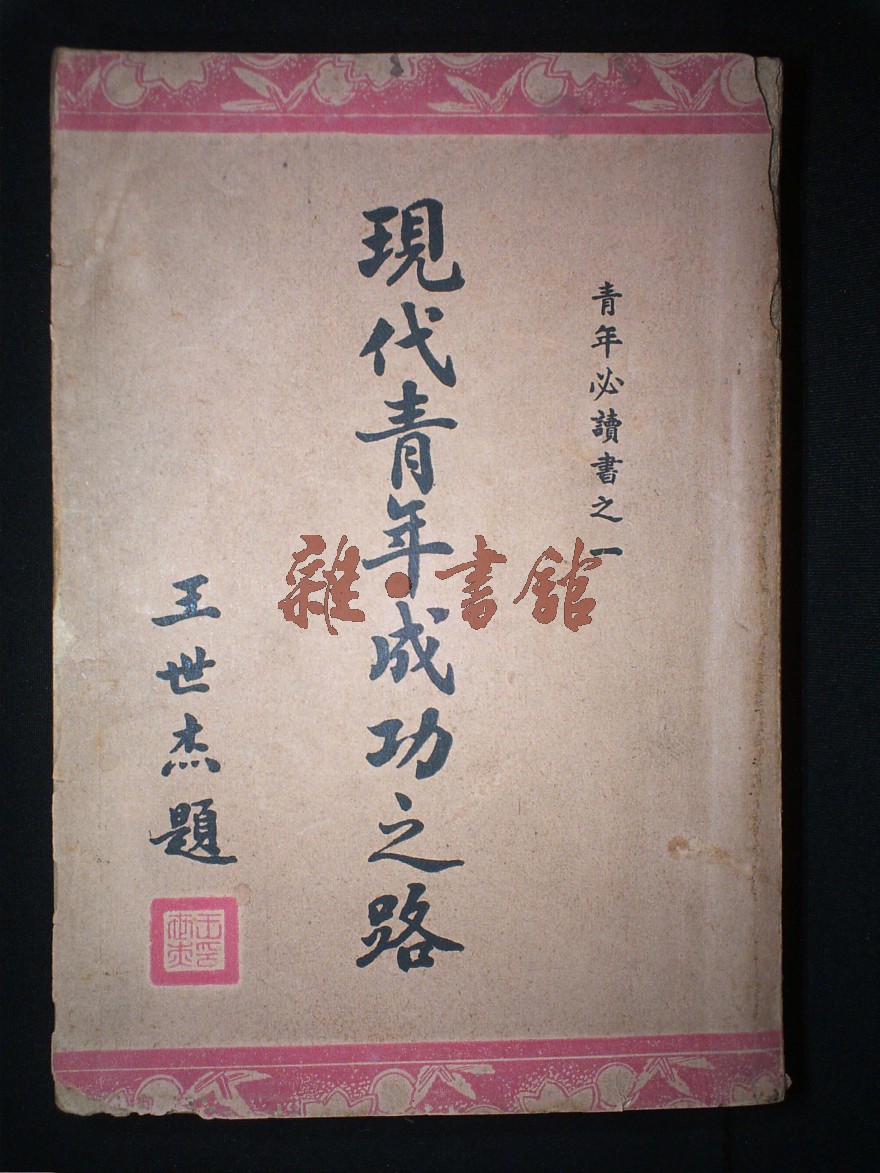 青年必讀書之一
現代青年成功之路
王世杰題
雜·書館